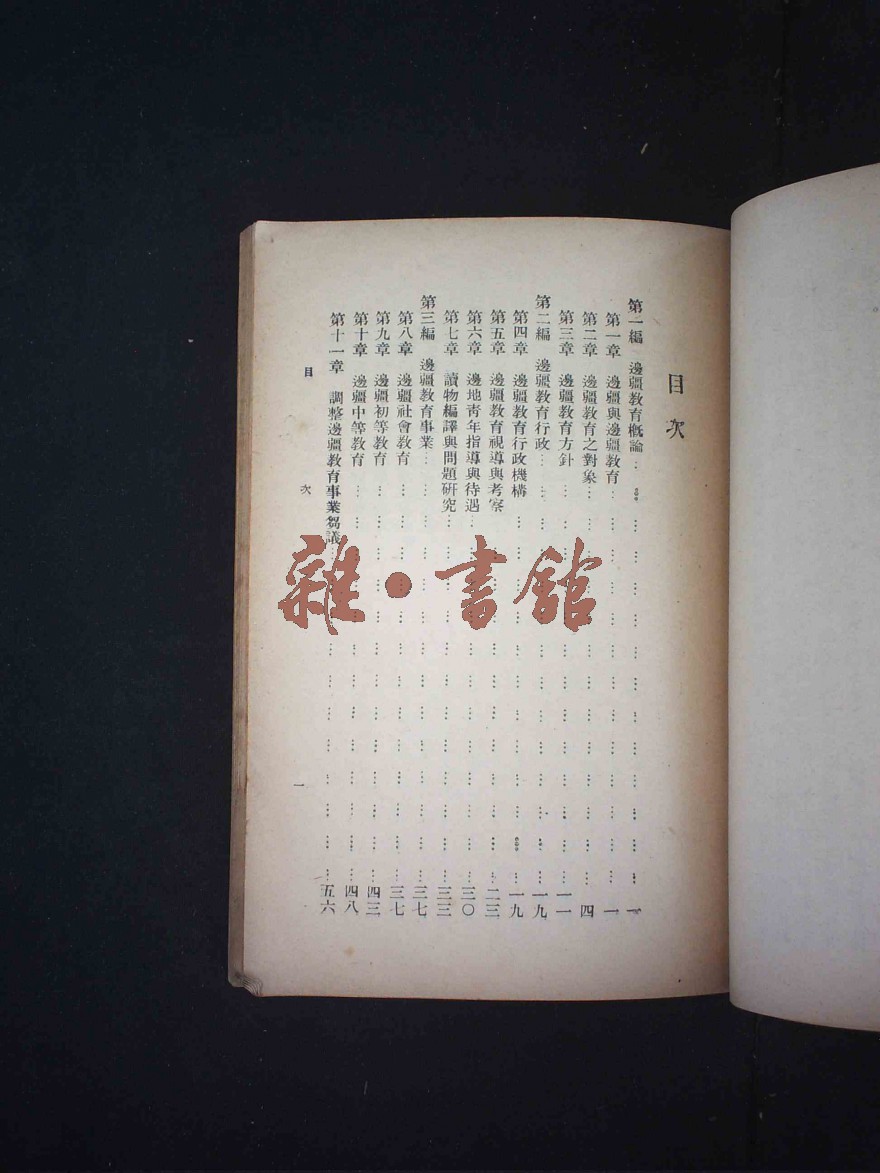 目次
第一編 邊疆教育概論 一
第一章 邊疆與邊疆教育 一
第二章 邊疆教育之對象 四
第三章 邊疆教育方針 一一
第二編 邊疆教育行政 一九
第四章 邊疆教育行政機構 一九
第五章 邊疆教育視導與考察 二三
第六章 邊地靑年指導與待遇 三〇
第七章 讀物編譯與問題硏究 三三
第三編 邊疆教育事業 三七
第八章 邊疆社會教育 三七
第九章 邊疆初等教育 四三
第十章 邊疆中等教育 四八
第十一章 調整邊疆教育事業芻議 五六
目次 一
雜·書館